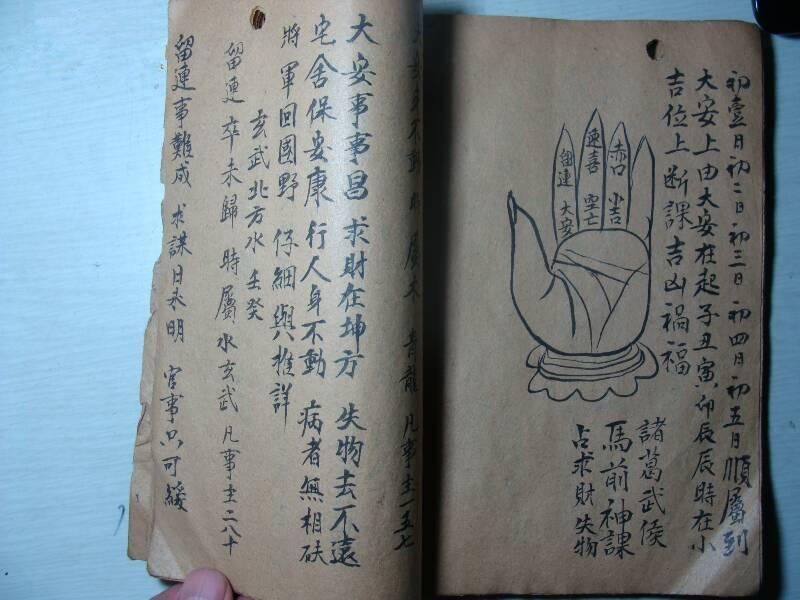 初壹日初二日初三日初四日初五日順屬到
大安上由大安在起子丑寅卯辰辰時在小
吉位上断課吉凶禍福
赤口 小吉
速喜 空亡
留連 大安
諸葛武侯
馬前神課
占求財失物
身不動 屬木 青龍 凡事主一五七
大安事事昌 求財在坤方 失物去不遠
宅舍保安康 行人身不動 病者無相砆
將軍回國野 仔細與推詳
玄武北方水 壬癸
留連 卒未歸 時屬水玄武 凡事主二八十
留連事難成 求謀日永明 官事只可緩